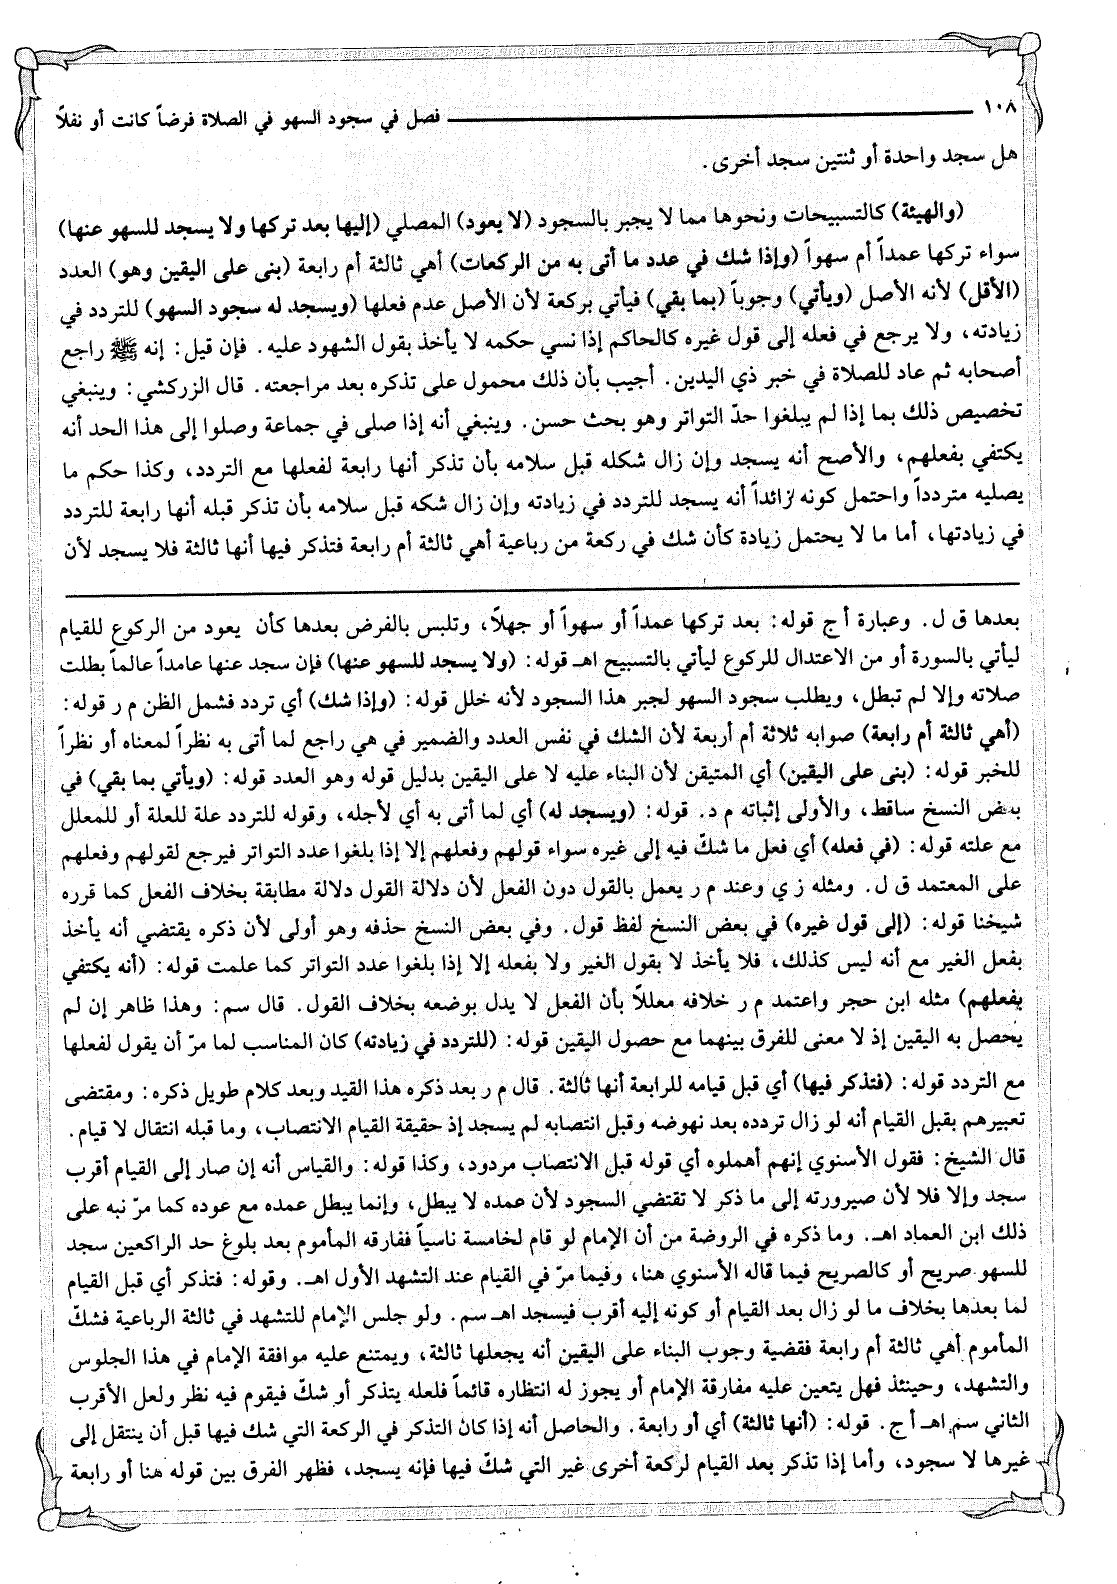 ١٠٨ فصل في سجود السهو في الصلاة فرضاً كانت أو نفلاً
هل سجد واحدة أو ثنتين سجد أخرى.
(والهيئة) كالتسبيحات ونحوها مما لا يجبر بالسجود (لا يعود) المصلي (إليها بعد تركها ولا يسجد للسهو عنها)
سواء تركها عمداً أم سهواً (وإذا شك في عدد ما أتى به من الركعات) أهي ثالثة أم رابعة (بنى على اليقين وهو) العدد
(الأقل) لأنه الأصل (ويأتي) وجوباً (بما بقي) فيأتي بركعة لأن الأصل عدم فعلها (ويسجد له سجود السهو) للتردد في
زيادته، ولا يرجع في فعله إلى قول غيره كالحاكم إذا نسي حكمه لا يأخذ بقول الشهود عليه. فإن قيل: إنه ﷺ راجع
أصحابه ثم عاد للصلاة في خبر ذي اليدين. أجيب بأن ذلك محمول على تذكره بعد مراجعته. قال الزركشي: وينبغي
تخصيص ذلك بما إذا لم يبلغوا حدّ التواتر وهو بحث حسن. وينبغي أنه إذا صلى في جماعة وصلوا إلى هذا الحد أنه
يكتفي بفعلهم، والأصح أنه يسجد وإن زال شكله قبل سلامه بأن تذكر أنها رابعة لفعلها مع التردد، وكذا حكم ما
يصليه متردداً واحتمل كونه زائداً أنه يسجد للتردد في زيادته وإن زال شكه قبل سلامه بأن تذكر قبله أنها رابعة للتردد
في زيادتها، أما ما لا يحتمل زيادة كأن شك في ركعة من رباعية أهي ثالثة أم رابعة فتذكر فيها أنها ثالثة فلا يسجد لأن
بعدها ق ل. وعبارة أ ج قوله: بعد تركها عمداً أو سهواً أو جهلاً، وتلبس بالفرض بعدها كأن يعود من الركوع للقيام
ليأتي بالسورة أو من الاعتدال للركوع ليأتي بالتسبيح اهـ قوله: (ولا يسجد للسهو عنها) فإن سجد عنها عامداً عالماً بطلت
صلاته وإلا لم تبطل، ويطلب سجود السهو لجبر هذا السجود لأنه خلل قوله: (وإذا شك) أي تردد فشمل الظن م ر قوله:
(أهي ثالثة أم رابعة) صوابه ثلاثة أم أربعة لأن الشك في نفس العدد والضمير في هي راجع لما أتى به نظراً لمعناه أو نظراً
للخبر قوله: (بنى على اليقين) أي المتيقن لأن البناء عليه لا على اليقين بدليل قوله وهو العدد قوله: (ويأتي بما بقي) في
بعض النسخ ساقط، والأولى إثباته م د. قوله: (ويسجد له) أي لما أتى به أي لأجله، وقوله للتردد علة للعلة أو للمعلل
مع علته قوله: (في فعله) أي فعل ما شكّ فيه إلى غيره سواء قولهم وفعلهم إلا إذا بلغوا عدد التواتر فيرجع لقولهم وفعلهم
على المعتمد ق ل. ومثله ز ي وعند م ر يعمل بالقول دون الفعل لأن دلالة القول دلالة مطابقة بخلاف الفعل كما قرره
شيخنا قوله: (إلى قول غيره) في بعض النسخ لفظ قول. وفي بعض النسخ حذفه وهو أولى لأن ذكره يقتضي أنه يأخذ
بفعل الغير مع أنه ليس كذلك، فلا يأخذ لا بقول الغير ولا بفعله إلا إذا بلغوا عدد التواتر كما علمت قوله: (أنه يكتفي
بفعلهم) مثله ابن حجر واعتمد م ر خلافه معللاً بأن الفعل لا يدل بوضعه بخلاف القول. قال سم: وهذا ظاهر إن لم
يحصل به اليقين إذ لا معنى للفرق بينهما مع حصول اليقين قوله: (للتردد في زيادته) كان المناسب لما مرّ أن يقول لفعلها
مع التردد قوله: (فتذكر فيها) أي قبل قيامه للرابعة أنها ثالثة. قال م ر بعد ذكره هذا القيد وبعد كلام طويل ذكره: ومقتضى
تعبيرهم بقبل القيام أنه لو زال تردده بعد نهوضه وقبل انتصابه لم يسجد إذ حقيقة القيام الانتصاب، وما قبله انتقال لا قيام.
قال الشيخ: فقول الأسنوي إنهم أهملوه أي قوله قبل الانتصاب مردود، وكذا قوله: والقياس أنه إن صار إلى القيام أقرب
سجد وإلا فلا لأن صيرورته إلى ما ذكر لا تقتضي السجود لأن عمده لا يبطل، وإنما يبطل عمده مع عوده كما مرّ نبه على
ذلك ابن العماد اهـ. وما ذكره في الروضة من أن الإمام لو قام لخامسة ناسياً ففارقه المأموم بعد بلوغ حد الراكعين سجد
للسهو صريح أو كالصريح فيما قاله الأسنوي هنا، وفيما مرّ في القيام عند التشهد الأول اهـ. وقوله: فتذكر أي قبل القيام
لما بعدها بخلاف ما لو زال بعد القيام أو كونه إليه أقرب فيسجد اهـ سم. ولو جلس الإمام للتشهد في ثالثة الرباعية فشكّ
المأموم أهي ثالثة أم رابعة فقضية وجوب البناء على اليقين أنه يجعلها ثالثة، ويمتنع عليه موافقة الإمام في هذا الجلوس
والتشهد، وحينئذ فهل يتعين عليه مفارقة الإمام أو يجوز له انتظاره قائماً فلعله يتذكر أو شكّ فيقوم فيه نظر ولعل الأقرب
الثاني سم اهـ أ ج. قوله: (أنها ثالثة) أي أو رابعة. والحاصل أنه إذا كان التذكر في الركعة التي شك فيها قبل أن ينتقل إلى
غيرها لا سجود، وأما إذا تذكر بعد القيام لركعة أخرى غير التي شكّ فيها فإنه يسجد، فظهر الفرق بين قوله هنا أو رابعة